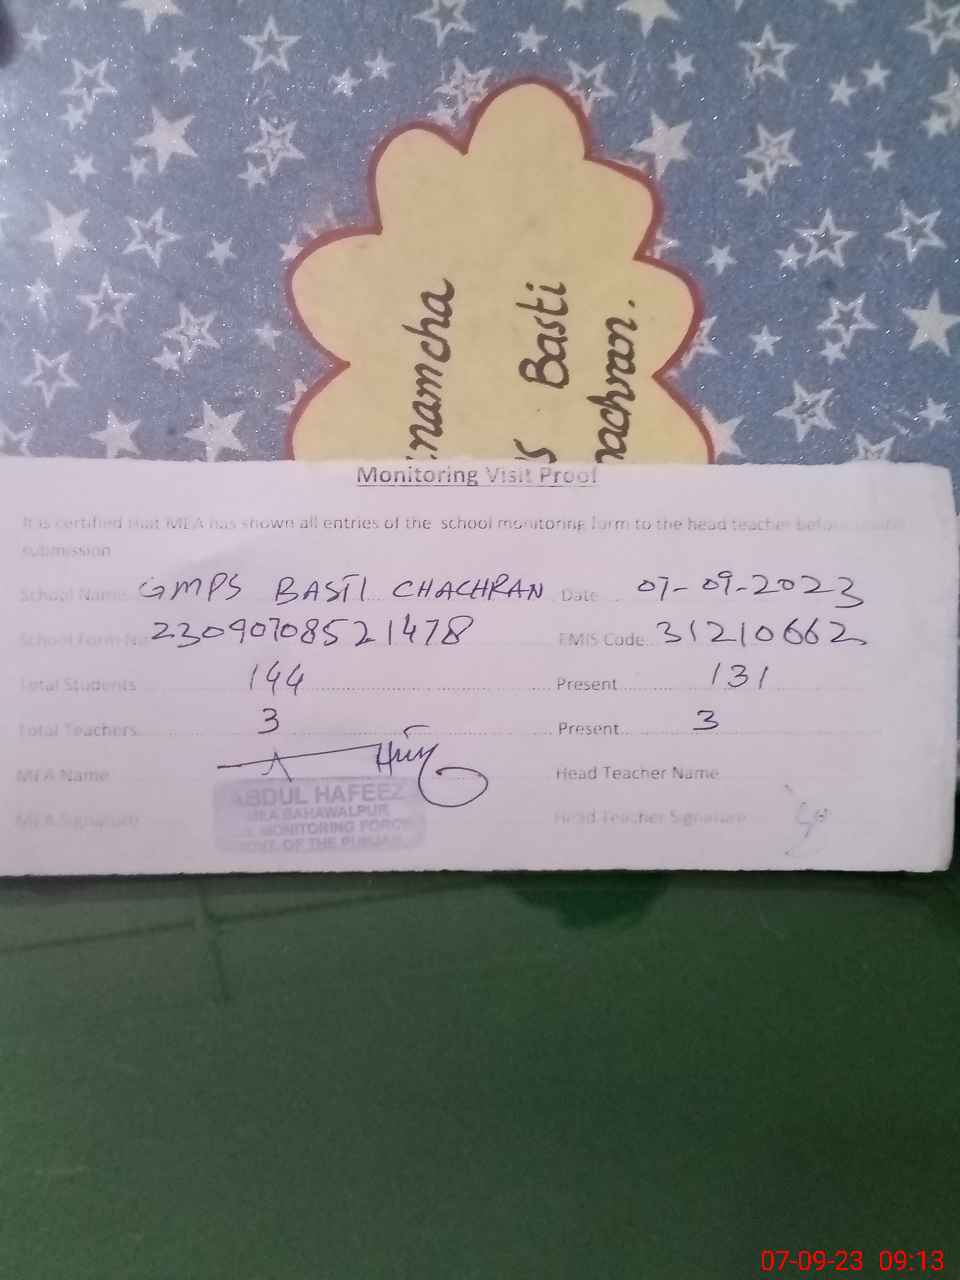 namcha
Basti
achran.
Monitoring Visit Proof
It is certified that MEA has shown all entries of the school monitoring form to the head teacher before
submission
School Name GMPS BASTI CHACHRAN Date 07-09-2023
School Form No 23090708521478 EMIS Code 31210662
Total Students 144 Present 131
Total Teachers 3 Present 3
MEA Name Head Teacher Name
ABDUL HAFEEZ
MEA BAHAWALPUR
MEA Signature MONITORING FORCE Head Teacher Signature
GOVT. OF THE PUNJAB
07-09-23 09:13